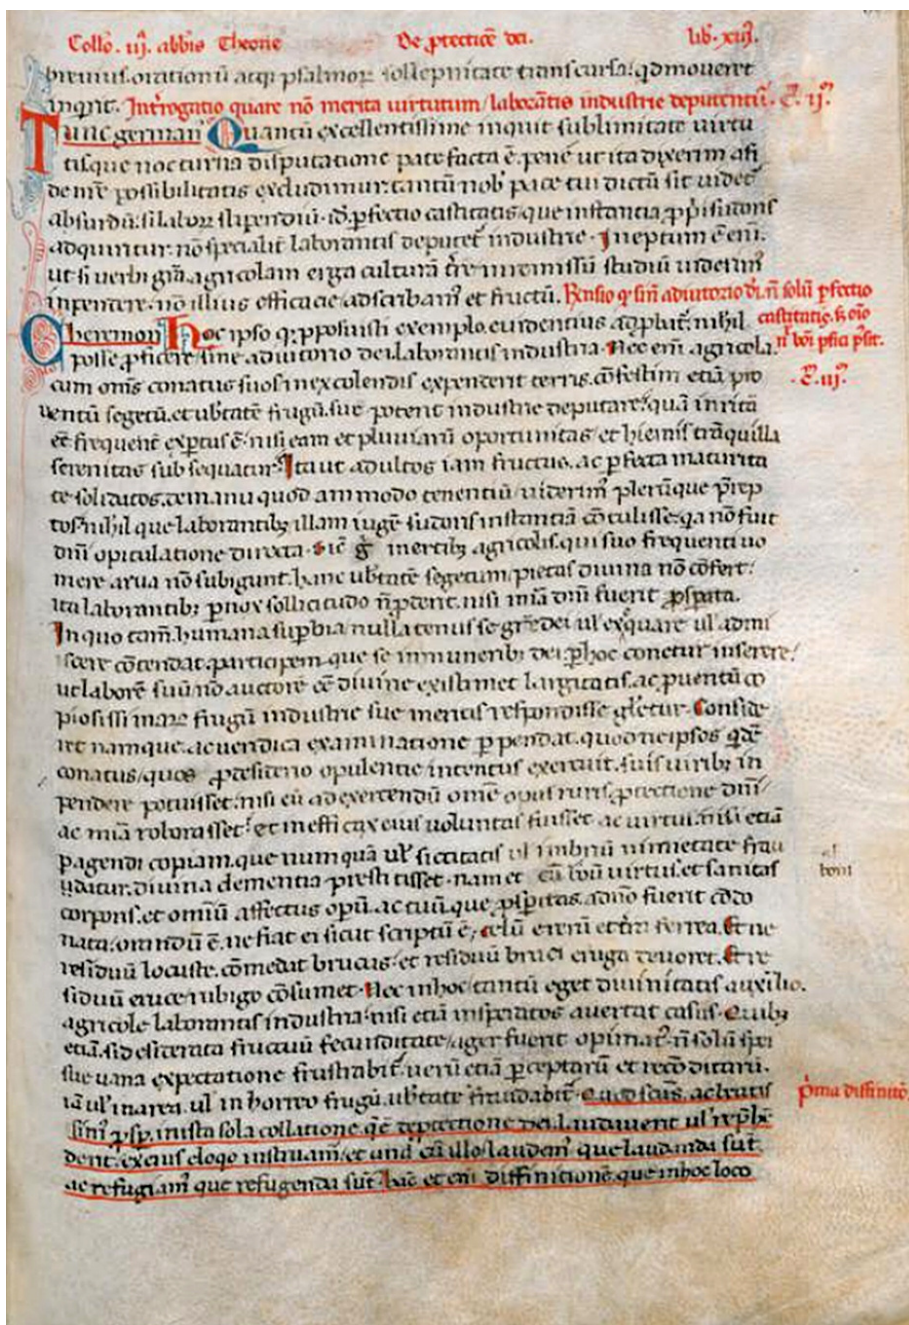 Collo. iij. abbis Theone De ꝓtectiōe dei. lib. xiij.
breuius orationū atqꝫ psalmoꝝ sollepnitate transcursa: qd moueret
inqrit. Intͬrogatio quare nō merita uirtutum / laborātis industrie deputentur. C. ij.
Tunc germanꝰ Quantū excellentissime inquit sublimitate uirtu
tisque nocturna disputatione patefacta ē. pene ut ita dixerim a fi
de nr̄e possibilitatis excludimur. tantū nob pace tui dictū sit uidet
absurdū. si laboꝝ stipendiū. id ꝑfectio castitatis, que instantia ꝓprii sudoris
adquiritur. nō specialit laborantis deputet industrie. Ineptum ē eni.
ut si uerbi grā. agricolam erga culturā tr̄re
inpendere. nō illius efficacie adscribamꝰ et fructū. Rensio qꝫ sine adiutorio dei nō solū ꝑfectio
castitatis. ꝫ oīo
Cheremon Hoc ipso qꝫ pposuisti exemplo. euidentius adꝓbat. nihil
posse ꝓficere sine adiutorio dei laborantis industria. Nec eni agricola.
C. iij.
cum omīs conatus suos in excolendis expenderit terris. cōfestim etiā pro
uentū segetū. et ubtatē frugū. sue poterit industrie deputare: quā irritā
eē frequent exptus ē. nisi eam et pluuiarū oportunitas / et hiemis trāquilla
serenitas subsequatur. Ita ut adultos iam fructus. ac ꝑfecta maturita
te solidatos. de manu quod ammodo tenentiū / uiderimꝰ pleruque p̄rep
tos. nihil que laborantibꝫ illam iugē sudoris instantiā cōtulisse. qa nō fuit
dn̄i opiculatione directa. Sic g̊ inertibꝫ agricolis. qui suo frequenti uo
mere arua nō subigunt. hanc ubtatē segetum / pietas diuina nō cōfert:
ita laborantibꝫ pnox sollicitudo nō ꝓderit. nisi mīa dn̄i fuerit ꝓsꝑata.
In quo tam̄. humana supbia / nullatenus se gr̄e dei ul exquare ul admi
scere cōtendat. participem que se in muneribꝫ dei. ꝑ hoc conetur inserere:
ut laborē suū. nō auctorē eē diuine existimet largitatis. ac puentū co
piosissimaꝝ frugū industrie sue meritis respondisse gl̄etur. Conside
ret namque. ac ueridica examinatione ꝑpendat. quod ne ipsos qdē
conatus / quos ꝓ desiderio opulentie intentus exercuit. suis uiribꝫ in
pendere potuisset. nisi eū ad exercendū omē opus ruris. ꝓtectione dn̄i
ac mīa roborasset: et inefficax eius uoluntas fuisset ac uirtus. nisi etiā
pagendi copiam. que numquā ul siccitatis ul imbriū nimietate frau
datur. diuina clementia prestitisset. nam et cū boū uirtus. et sanitas
al
boni
corporis. et omiū affectus opū. ac tuū. que ꝓspitas. a dn̄o fuerit cōdo
nata: orandū ē. ne fiat ei sicut scriptū ē; celū ereū et trā ferrea. Et ne
residuū locuste. cōmedat brucus: et residuū bruci eruga deuoret. Et re
siduū eruce rubigo cōsumet. Nec in hoc tantū eget diuinitatis auxilio.
agricole laborantis industria: nisi etiā insperatos auertat casus. Quibꝫ
etiā. si desiderata fructuū fecunditate / ager fuerit opimatꝰ. nō solū spei
sue uana expectatione frustrabit. uerū etiā ꝑceptarū et recōditarū.
iā ul in area. ul in horreo frugū. ubtate fraudabit. Quod scūs. ac beatis
p̄ma diffinitio
simꝰ ꝓspꝫ. in ista sola collatione qē de ꝓtectione dei. laudauerit ul rep̄hē
derit. ex eius eloqo instruamꝰ. et una cū illo laudemꝰ que laudanda sūt.
ac refugiamꝰ que refugenda sūt. hāc et eni diffinitionē. que in hoc loco